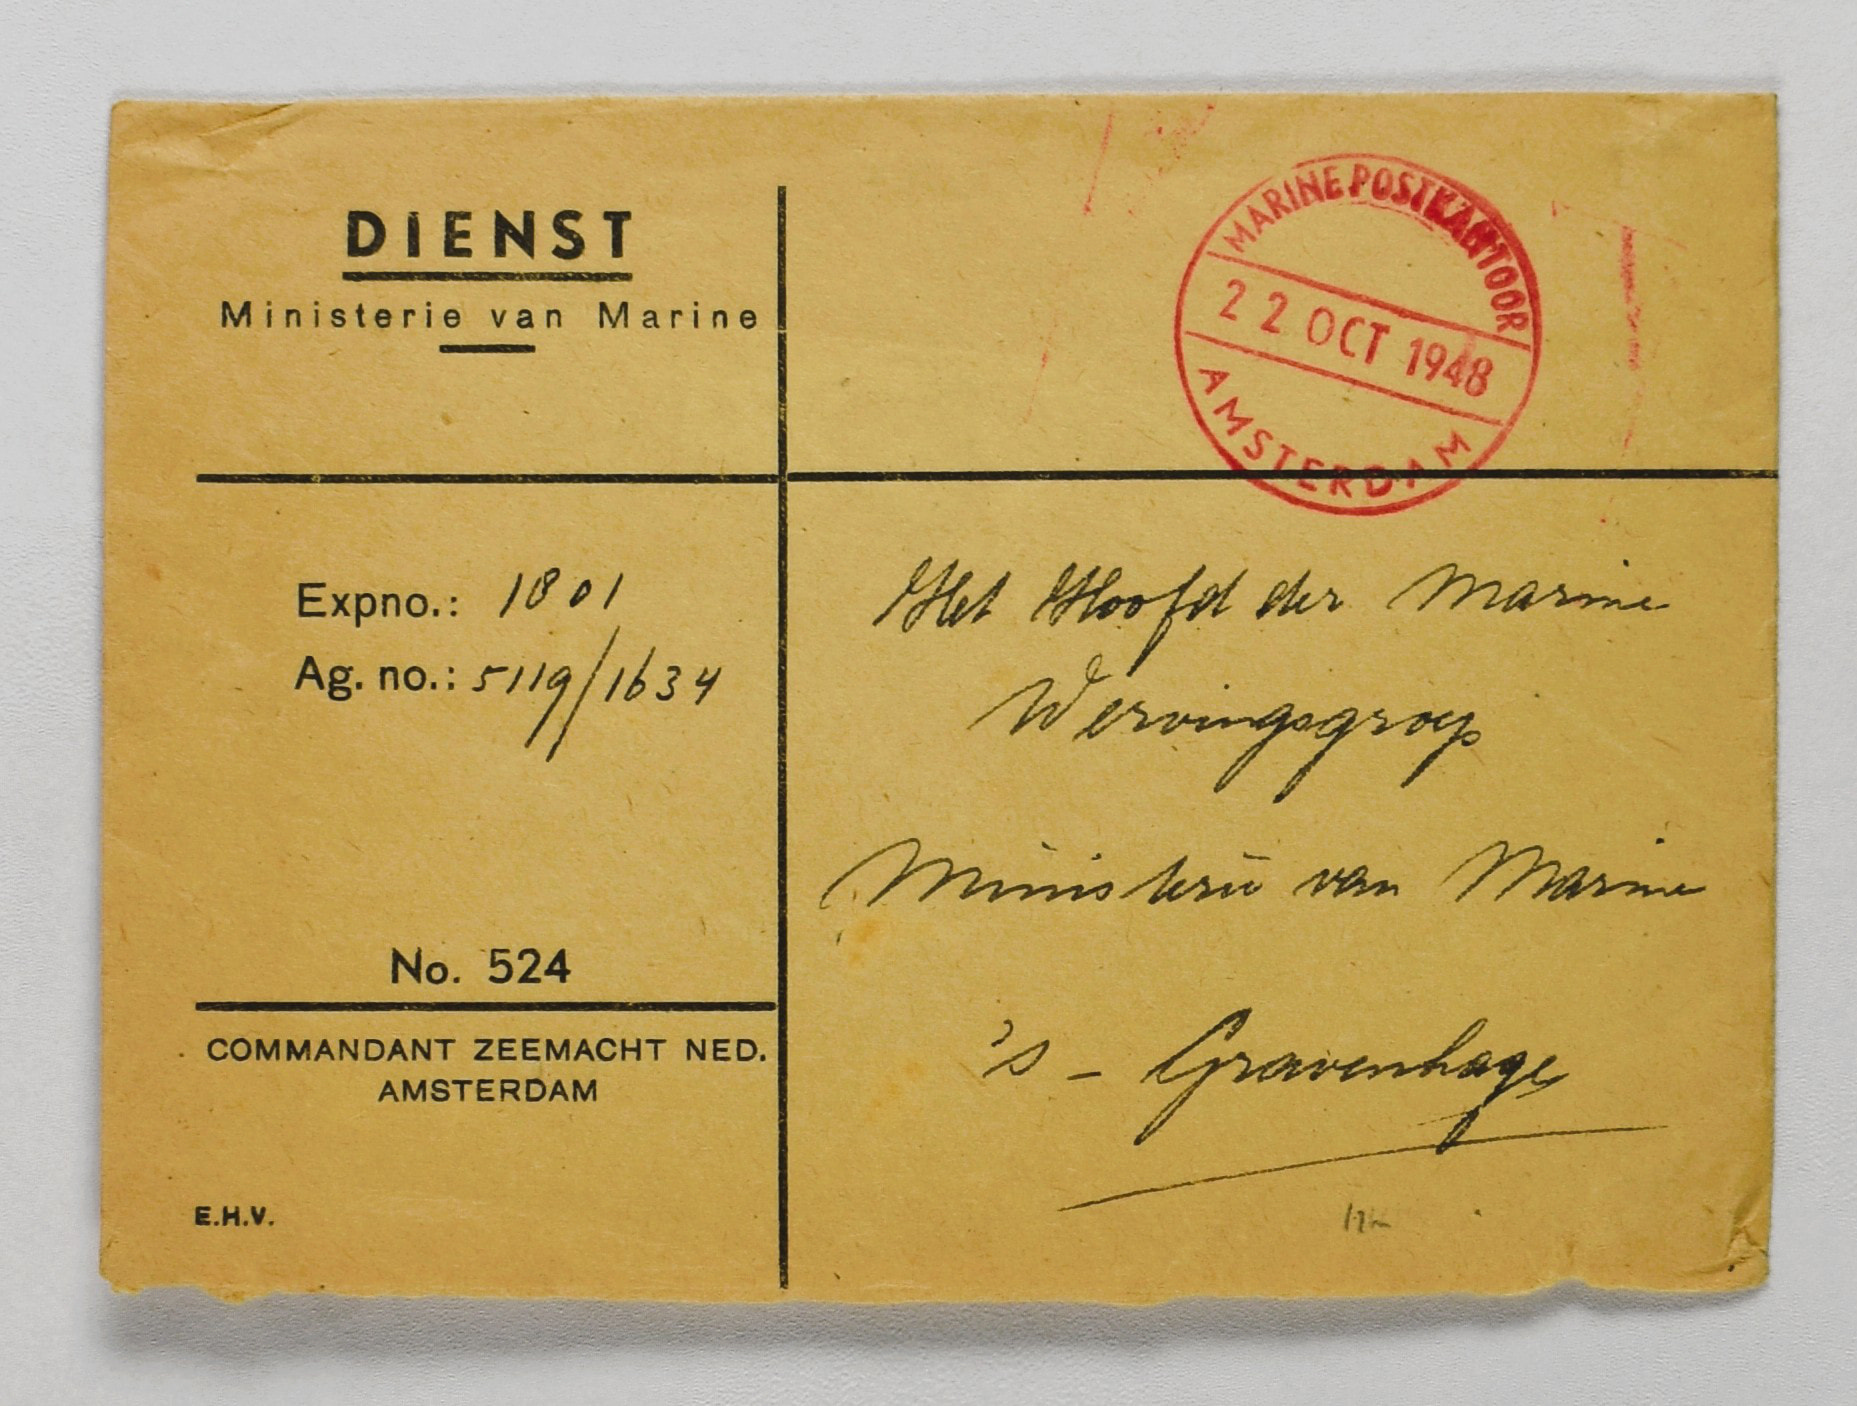 DIENST
Ministerie van Marine
MARINE POSTKANTOOR
22 OCT 1948
AMSTERDAM
Expno.: 1801
Ag. no.: 5119/1634
Het Hoofd der Marine
Wervingsgroep
Ministerie van Marine
's-Gravenhage
No. 524
COMMANDANT ZEEMACHT NED.
AMSTERDAM
E.H.V.